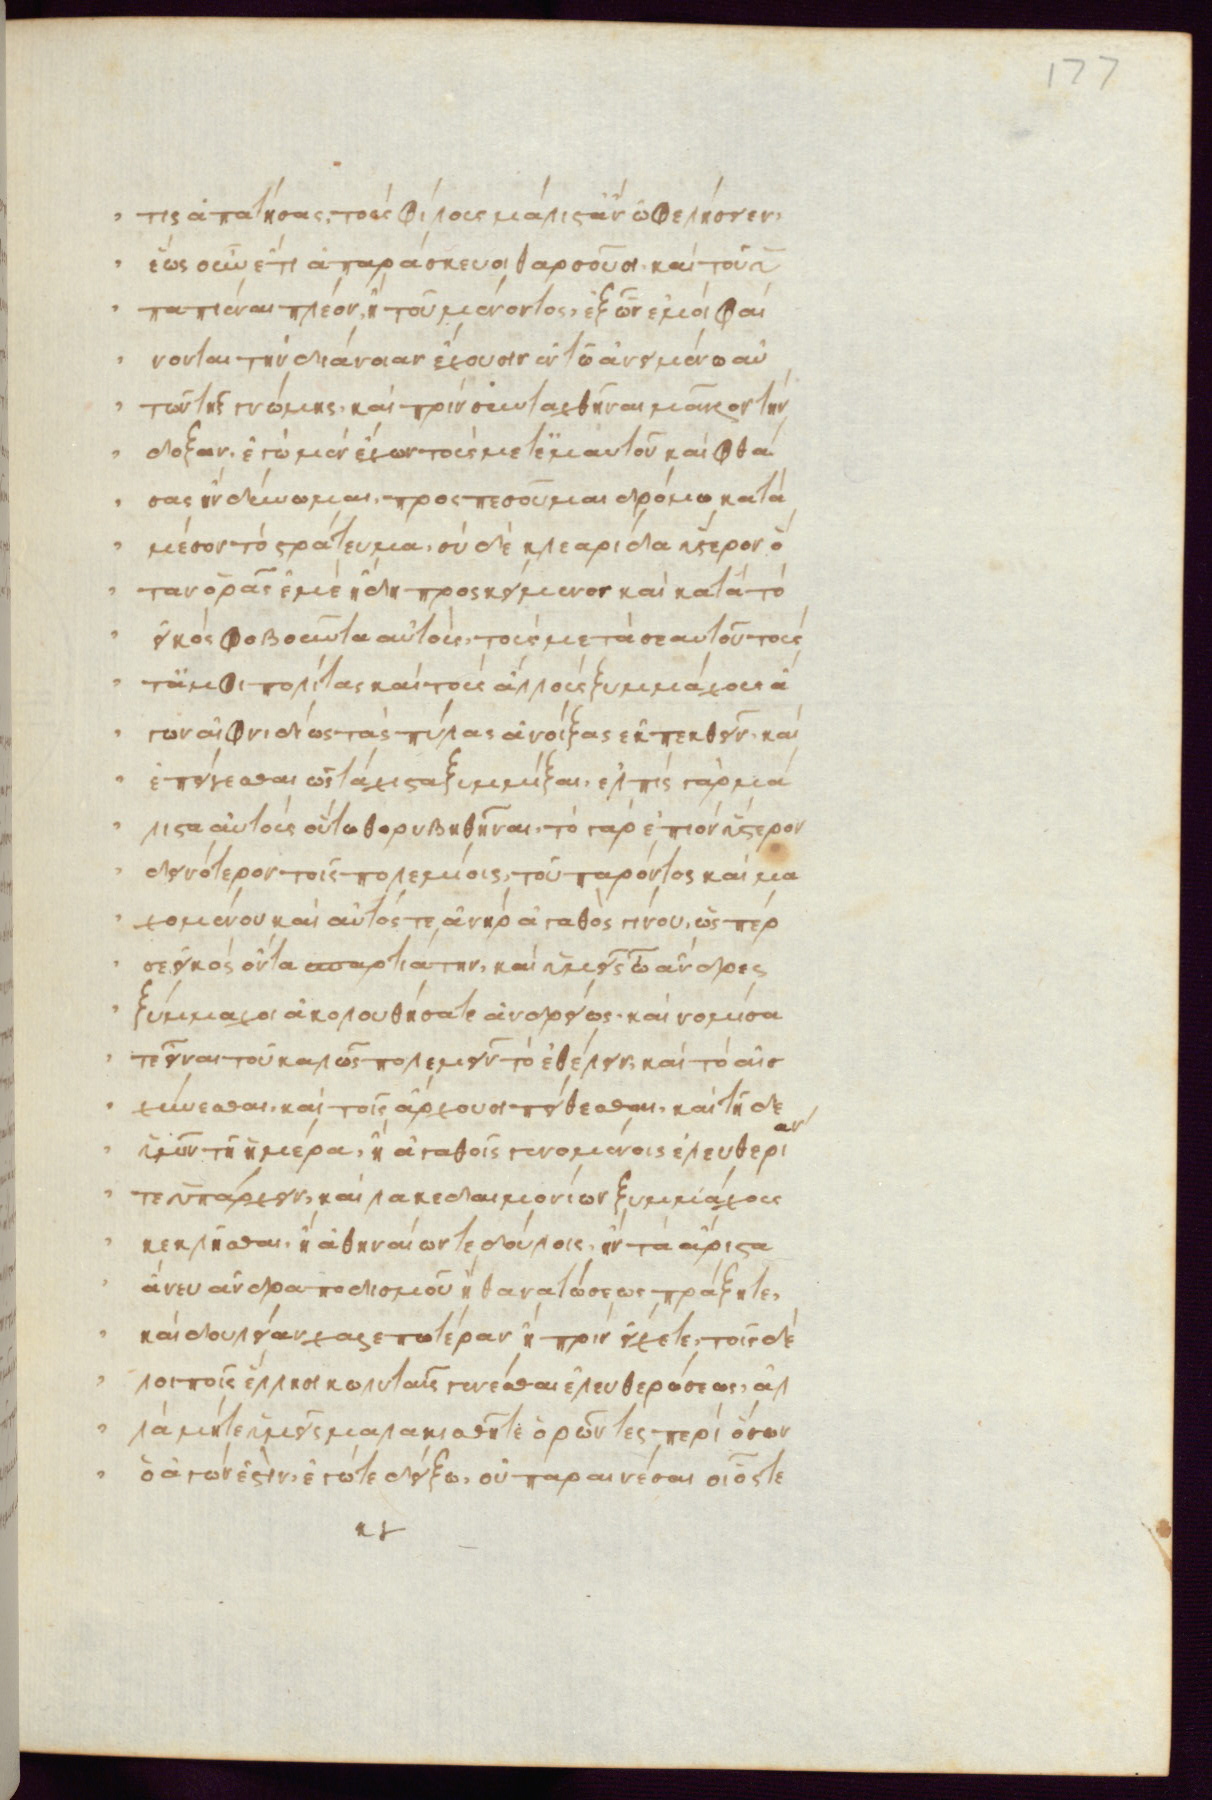 177
τις ἀπατήσας, τοὺς φίλους μάλιστ' ἂν ὠφελήσειεν,
ἕως οὖν ἔτι ἀπαράσκευοι θαρσοῦσι, καὶ τοῦ ὑ
παπιέναι πλέον, ἢ τοῦ μένοντος, ἐξ ὧν ἐμοὶ φαί
νονται τὴν διάνοιαν ἔχουσιν ἐν τῷ ἀνειμένῳ αὐ
τῶν τῆς γνώμης, καὶ πρὶν συνταχθῆναι μᾶλλον τὴν
δόξαν, ἐγὼ μὲν ἔχων τοὺς μετ' ἐμαυτοῦ καὶ φθά
σας ἢν δύνωμαι, προσπεσοῦμαι δρόμῳ κατὰ
μέσον τὸ στράτευμα, σὺ δὲ κλεαρίδα ὕστερον ὅ
ταν ὁρᾷς ἐμὲ ἤδη προσκείμενον καὶ κατὰ τὸ
εἰκὸς φοβοῦντα αὐτοὺς, τοὺς μετὰ σεαυτοῦ τούς
τ' ἀμφιπολίτας καὶ τοὺς ἄλλους ξυμμάχους ἄ
γων αἰφνιδίως τὰς πύλας ἀνοίξας ἐκπεκθεῖν, καὶ
ἐπείγεσθαι ὡς τάχιστα ξυμμίξαι, ἐλπὶς γὰρ μά
λιστα αὐτοὺς οὕτω θορυβηθῆναι, τὸ γὰρ ἐπιὸν ὕστερον
δεινότερον τοῖς πολεμίοις, τοῦ παρόντος καὶ μα
χομένου καὶ αὐτός τε ἀνὴρ ἀγαθὸς γίνου, ὥσπέρ
σε εἰκὸς ὄντα σπαρτιάτην, καὶ ὑμεῖς ὦ ἄνδρες
ξύμμαχοι ἀκολουθήσατε ἀνδρείως, καὶ νομίσα
τε εἶναι τοῦ καλῶς πολεμεῖν τὸ ἐθέλειν, καὶ τὸ αἰσ
χύνεσθαι, καὶ τοῖς ἄρχουσι πείθεσθαι, καὶ τῇδε
ὑμῖν τῇ ἡμέρᾳ, ἢ ἀγαθοῖς γενομένοις ἐλευθερίαν
τε ὑπάρχειν, καὶ λακεδαιμονίων ξυμμάχους
κεκλῆσθαι, ἢ ἀθηναίων τε δούλοις, ἢν τὰ ἄριστα
ἄνευ ἀνδραποδισμοῦ ἢ θανατώσεως πράξητε,
καὶ δουλείαν χαλεπωτέραν ἢ πρὶν εἴχετε, τοῖς δὲ
λοιποῖς ἕλλησι κωλυταῖς γενέσθαι ἐλευθερώσεως, ἀλ
λὰ μήτε ὑμεῖς μαλακισθῆτε ὁρῶντες περὶ ὅσων
ὁ ἀγών ἐστιν, ἐγώ τε δείξω, οὐ παραινέσαι οἷός τε
κγ